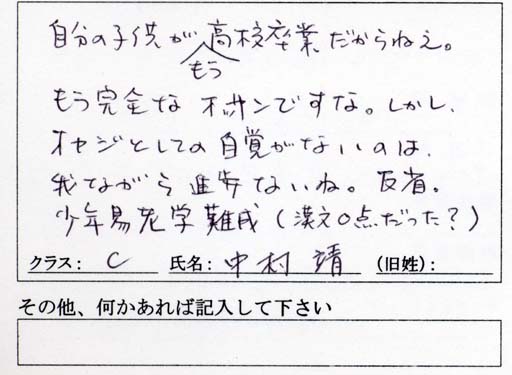 自分の子供がもう高校卒業だからねえ。
もう完全なオッサンですな。しかし、
オヤジとしての自覚がないのは、
我ながら進歩ないね。反省。
少年易老学難成(漢文0点だった?)
クラス: C 氏名: 中村 靖 (旧姓):
その他、何かあれば記入して下さい